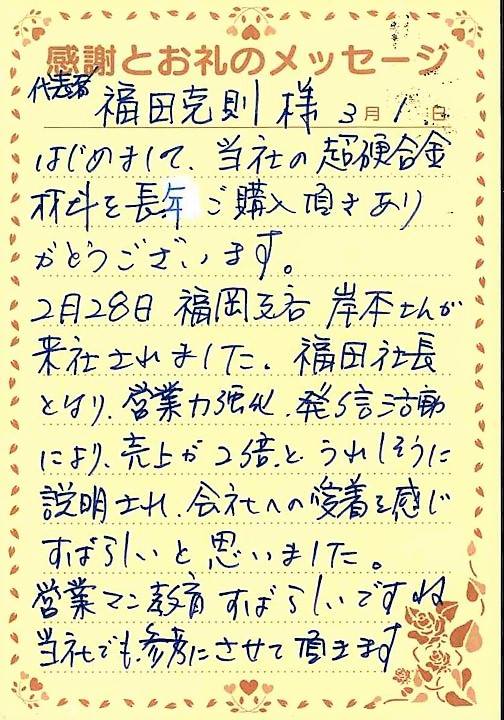 感謝とお礼のメッセージ
代表者 福田克則 様 3月1日
はじめまして、当社の超硬合金
材料を長年ご購入頂きあり
がとうございます。
2月28日 福岡支店 岸本さんが
来社されました。福田社長
となり、営業力強化、発信活動
により、売上が2倍とうれしそうに
説明され、会社への愛着を感じ
すばらしいと思いました。
営業マン教育すばらしいですね
当社でも参考にさせて頂きます